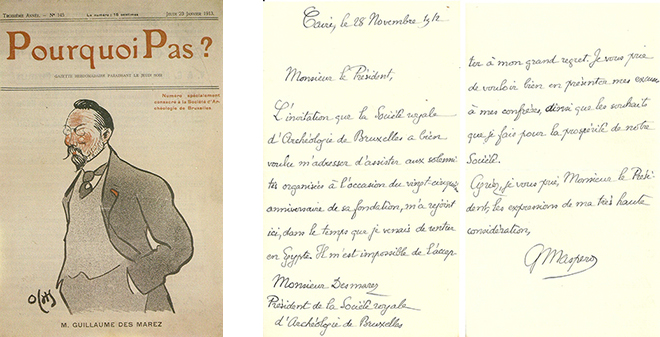 Troisième Année. — N° 145
Le numéro : 10 centimes
Jeudi 23 Janvier 1913.
Pourquoi Pas ?
GAZETTE HEBDOMADAIRE PARAISSANT LE JEUDI SOIR
Numéro spécialement
consacré à la Société d'Ar-
chéologie de Bruxelles.
Ochs
M. GUILLAUME DES MAREZ
Caire, le 28 Novembre 1912
Monsieur le Président,
L'invitation que la Société royale
d'Archéologie de Bruxelles a bien
voulu m'adresser d'assister aux solenni-
tés organisées à l'occasion du vingt-cinquième
anniversaire de sa fondation, m'a rejoint
ici, dans le temps que je venais de rentrer
en Egypte. Il m'est impossible de l'accep-
Monsieur Desmarez
Président de la Société royale
d'Archéologie de Bruxelles
ter à mon grand regret. Je vous prie
de vouloir bien en présenter mes excuses
à mes confrères, ainsi que les souhaits
que je fais pour la prospérité de notre
Société.
Agréez, je vous prie, Monsieur le Prési-
dent, les expressions de ma très haute
considération,
G Maspero